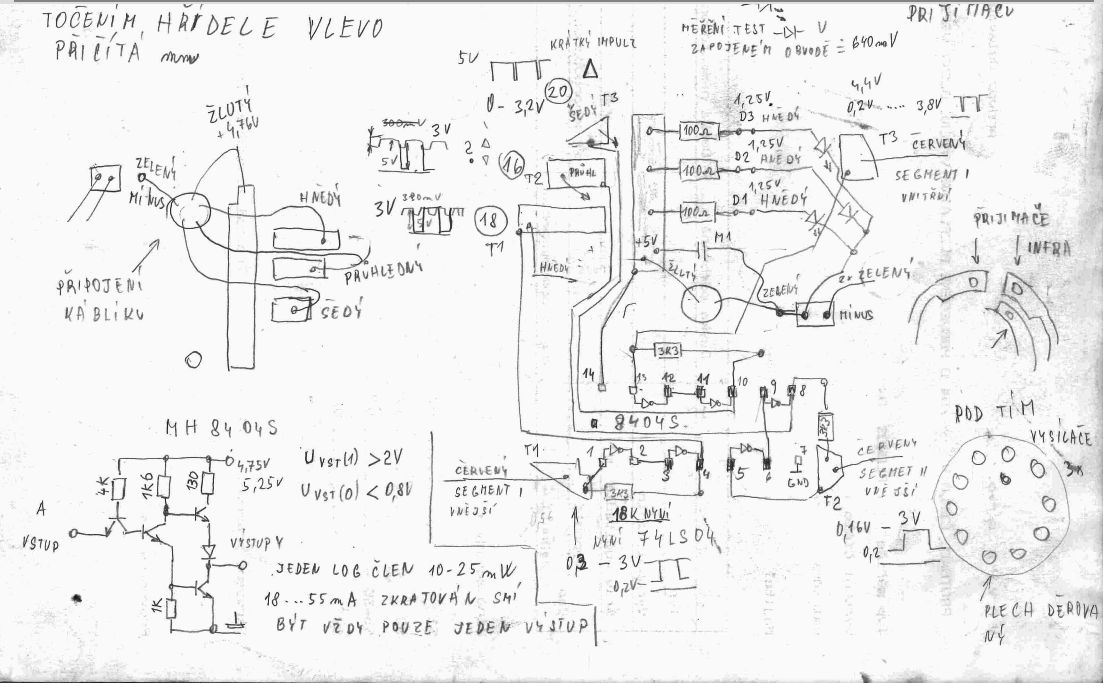 TOČENÍM HŘÍDELE VLEVO
PŘIČÍTÁ mm
KRÁTKÝ IMPULZ
5V
0 - 3,2V
20
MĚŘENÍ TEST V
ZAPOJENÉM OBVODĚ = 640mV
PŘIJÍMAČŮ
ŽLUTÝ
+4,76V
ZELENÝ
MÍNUS
HNĚDÝ
PRŮHLEDNÝ
ŠEDÝ
PŘIPOJENÍ
KÁBLÍKU
300mV
3V
5V
2
16
390mV
3V
5V
18
ŠEDÝ
T3
T2
PRŮHL
T1
HNĚDÝ
100Ω
1,25V
D3 HNĚDÝ
100Ω
1,25V
D2 HNĚDÝ
100Ω
1,25V
D1 HNĚDÝ
4,4V
0,2V .... 3,8V
T3
ČERVENÝ
SEGMENT I
VNITŘNÍ
+5V
M1
ŽLUTÝ
ZELENÝ
2x ZELENÝ
MÍNUS
PŘIJIMAČE
INFRA
3K3
14
13
12
11
10
9
8
8404S
3K3
T1
1
2
3
4
5
6
7
GND
ČERVENÝ
SEGMENT I
VNĚJŠÍ
3K3
18K NYNÍ
NYNÍ 74LS04
0,3 - 3V
0,2V
ČERVENÝ
SEGMET II
VNĚJŠÍ
T2
0,16V - 3V
0,2
POD TÍM
VYSÍLAČE
3x
PLECH DĚROVA
NÝ
MH 8404S
4K
1K6
130
4,75V
5,25V
A
VSTUP
VÝSTUP Y
1K
U VST(1) >2V
U VST(0) < 0,8V
JEDEN LOG ČLEN 10-25 mW
18...55mA ZKRATOVÁN SMÍ
BÝT VŽDY POUZE JEDEN VÝSTUP